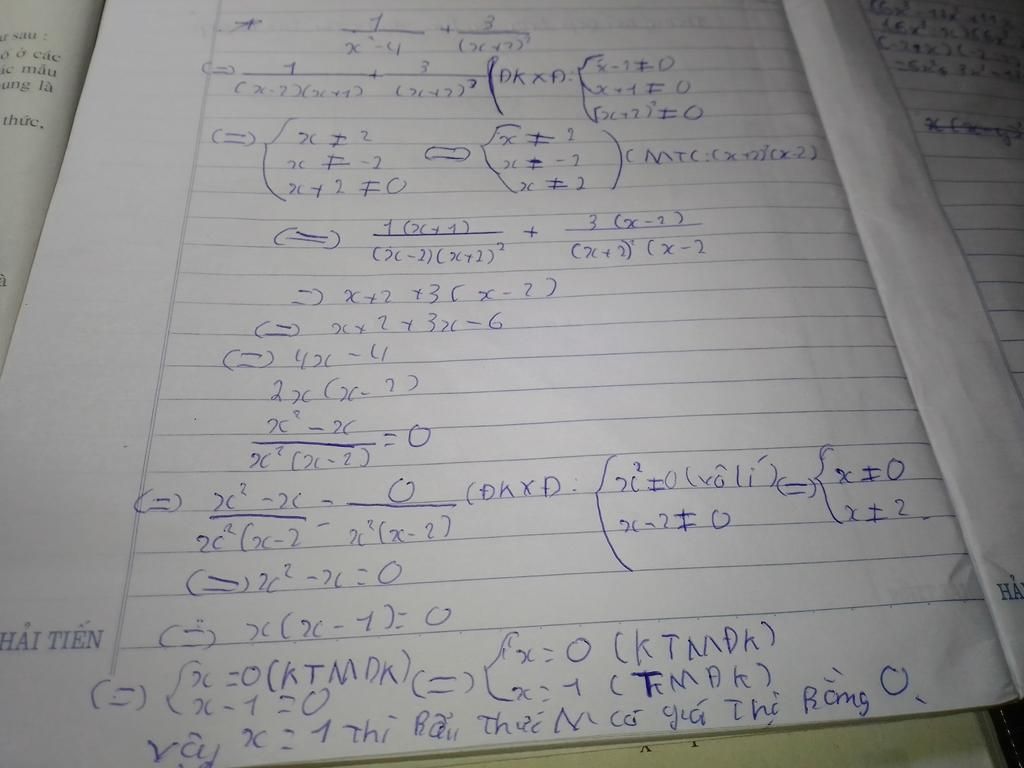 ư sau :
ó ở các
ác mẫu
ung là
thức,
* 1/(x²-4) + 3/(x+2)²
(=) 1/((x-2)(x+2)) + 3/(x+2)² (ĐKXĐ: { x-2≠0
x+1≠0
(x+2)²≠0
(=) { x≠2
x≠-2
x+2≠0
<=> { x≠2
x≠-2
x≠2 ) (MTC: (x+2)²(x-2)
(=) 1(x+1)/((x-2)(x+2)²) + 3(x-2)/((x+2)²(x-2
=) x+2+3(x-2)
(=) x+2+3x-6
(=) 4x-4
2x(x-2)
(x²-x)/(x²(x-2)) = 0
(=) (x²-x)/(x²(x-2) = 0/(x²(x-2)) (ĐKXĐ: { x²≠0 (vô lí)
x-2≠0
(=) { x≠0
x≠2
(=) x²-x=0
(=) x(x-1)=0
(=) { x=0 (KTMĐK)
x-1=0
(=) { x=0 (KTMĐK)
x=1 (TMĐK)
Vậy x=1 thì Biểu thức M có giá thị Bằng 0.
HẢI TIẾN
HẢI